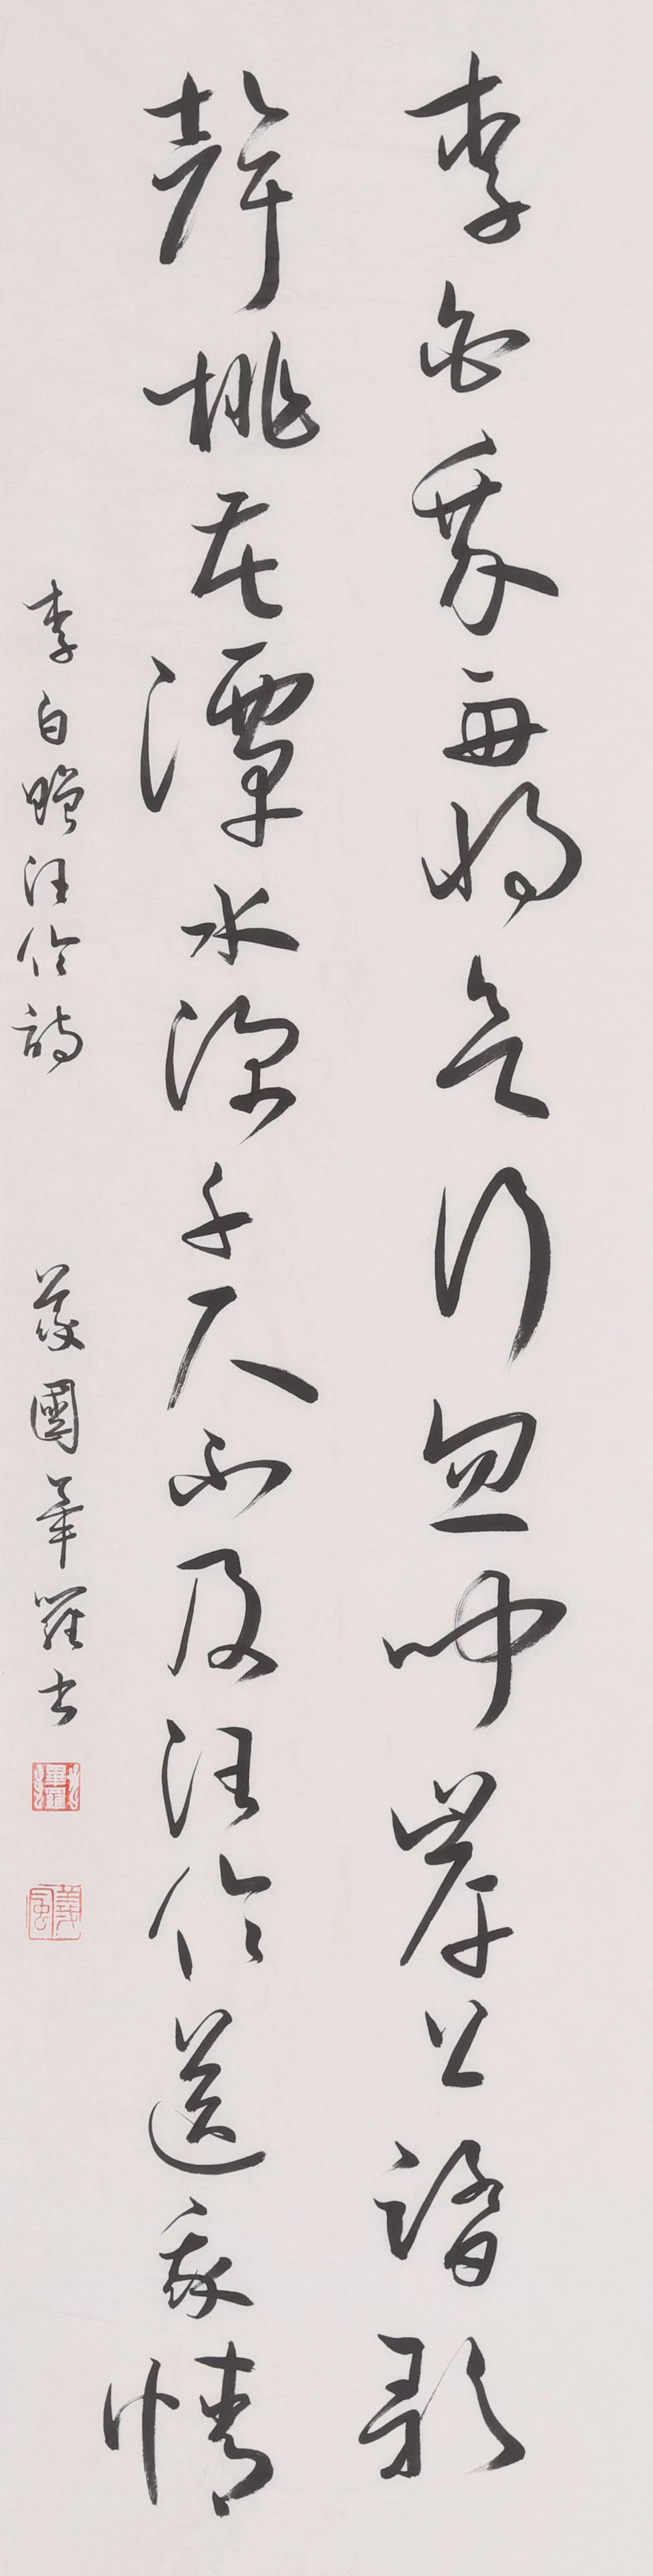 李白乘舟將欲行忽聞岸上踏歌
聲桃花潭水深千尺不及汪倫送我情
李白贈汪倫詩 義國華羅書
義風